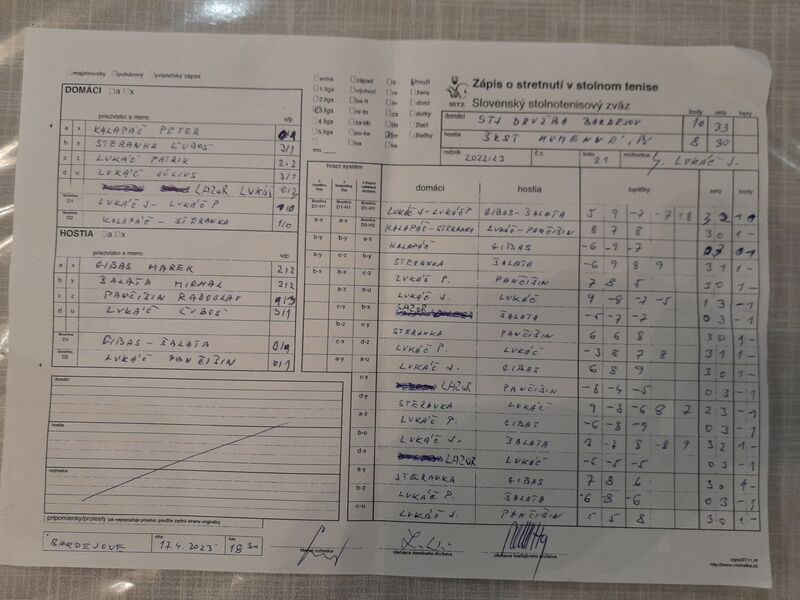 majstrovský pohárový priateľský zápas
DOMÁCI a x
priezvisko a meno v/p
a x KALAPÁČ PETER
b y STERANKA ĽUBOŠ 3/1
c z LUKÁČ PATRIK 2/2
d u LUKÁČ JÚLIUS 3/1
LAZOR LUKÁŠ 0/2
D1 LUKÁČ J- LUKÁČ P 1/0
D2 KALAPÁČ - STERANKA 1/0
HOSTIA a x
priezvisko a meno v/p
a x GIBAS MAREK 2/2
b y ŠALATA MICHAL 2/2
c z PANČIŠIN RADOSLAV 1/3
d u LUKÁČ ĽUBOŠ 3/1
D1 GIBAS - ŠALATA 0/1
D2 LUKÁČ PANČIŠIN 0/1
domáci
hostia
rozhodca
pripomienky/protesty (ak nepostačuje priestor, použite zadnú stranu originálu)
BARDEJOVE dňa 17.4.2023 čas 18 30
extra
1.liga
2.liga
3.liga
4.liga
5.liga
mo
západ
východ
ba-tt
nr-tn
za-bb
po-ke
ba
muži
ženy
dorci
dorky
žiaci
žiačky
SSTZ
Zápis o stretnutí v stolnom tenise
Slovenský stolnotenisový zväz
body sety lopty
domáci STJ DRUŽBA BARDEJOV 10 33
hostia ŠKST HUMENNÉ 8 30
ročník 2022/23 č.z. kolo 21 rozhodca LUKÁČ J.
hrací systém
domáci hostia loptičky sety body
LUKÁČ J- LUKÁČ P GIBAS - ŠALATA 5 9 -7 -7 8 3 2 1 0
a-x KALAPÁČ - STERANKA LUKÁČ - PANČIŠIN 8 7 8 3 0 1 -
b-y KALAPÁČ GIBAS -6 -9 -7 0 3 0 1
STERANKA ŠALATA -6 9 8 9 3 1 1 -
LUKÁČ P. PANČIŠIN 7 8 5 3 0 1 -
LUKÁČ J. LUKÁČ 9 -8 -7 -5 1 3 - 1
LAZOR ŠALATA -5 -7 -7 0 3 - 1
STERANKA PANČIŠIN 6 6 8 3 0 1 -
LUKÁČ P. LUKÁČ -3 8 7 8 3 1 1 -
LUKÁČ J. GIBAS 6 8 9 3 0 1 -
LAZOR PANČIŠIN -8 -4 -5 0 3 - 1
STERANKA LUKÁČ 9 -8 -6 8 7 2 3 - 1
LUKÁČ P. GIBAS -6 -8 -9 0 3 - 1
LUKÁČ J. ŠALATA -7 8 -8 9 3 2 1 -
LAZOR LUKÁČ -6 -5 -5 0 3 - 1
STERANKA GIBAS 7 8 6 3 0 1 -
LUKÁČ P. ŠALATA -6 -8 -6 0 3 - 1
LUKÁČ J. PANČIŠIN 5 5 8 3 0 1 -
hlavný rozhodca zástupca domáceho družstva zástupca hosťujúceho družstva